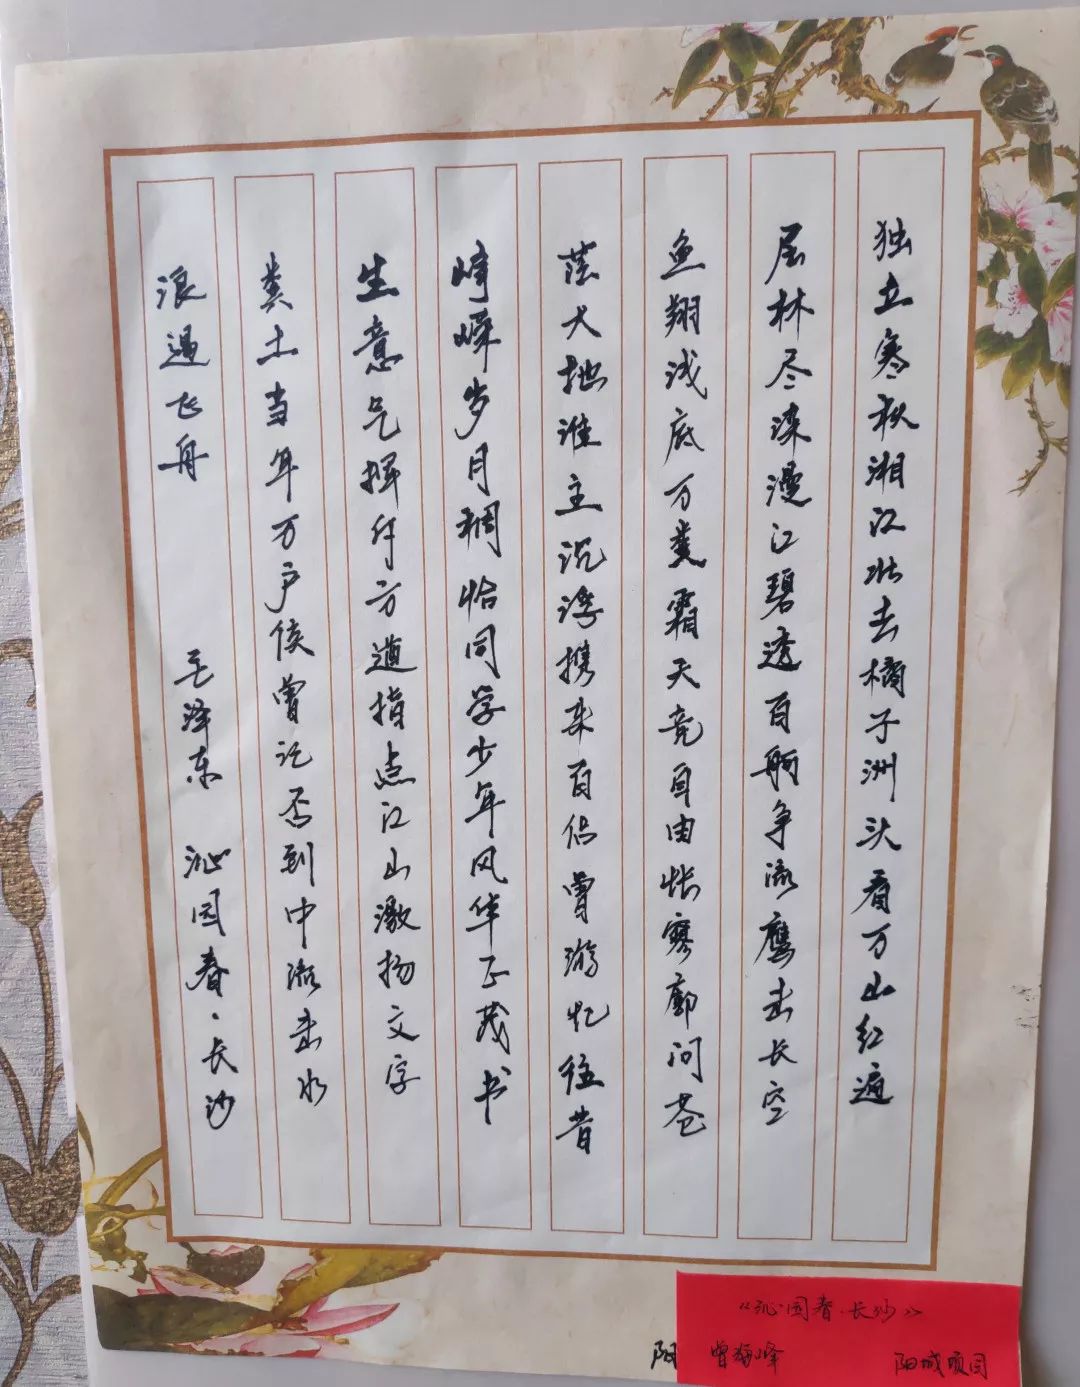 独立寒秋湘江北去橘子洲头看万山红遍
层林尽染漫江碧透百舸争流鹰击长空
鱼翔浅底万类霜天竞自由怅寥廓问苍
茫大地谁主沉浮携来百侣曾游忆往昔
峥嵘岁月稠恰同学少年风华正茂书
生意气挥斥方遒指点江山激扬文字
粪土当年万户侯曾记否到中流击水
浪遏飞舟 毛泽东 沁园春·长沙
《沁园春·长沙》
阳 曾海峰 阳城项目